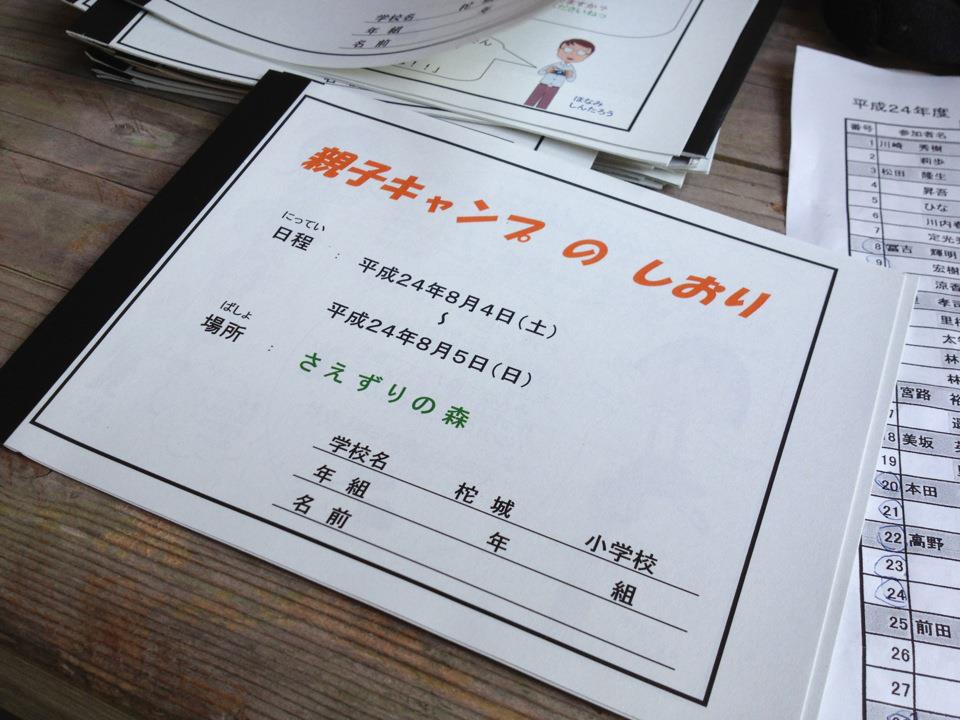 学校名
年 組
名 前
ほなみ
しんたろう
親子キャンプ の しおり
にってい
日程 : 平成24年8月4日(土)
～
平成24年8月5日(日)
ばしょ
場所 : さえずりの森
学校名 柁城 小学校
年 組 年 組
名 前
平成24年度
番号 参加者名
1 川崎 秀樹
2 莉歩
3 松田 隆生
4 昇吾
5 ひな
6 川内
7 定光
8 冨吉 輝明
9 宏樹
涼香
孝司
里
太
林
林
宮路 裕
18 美坂
19
20 本田
21
22 高野
23
24
25 前田
26
27